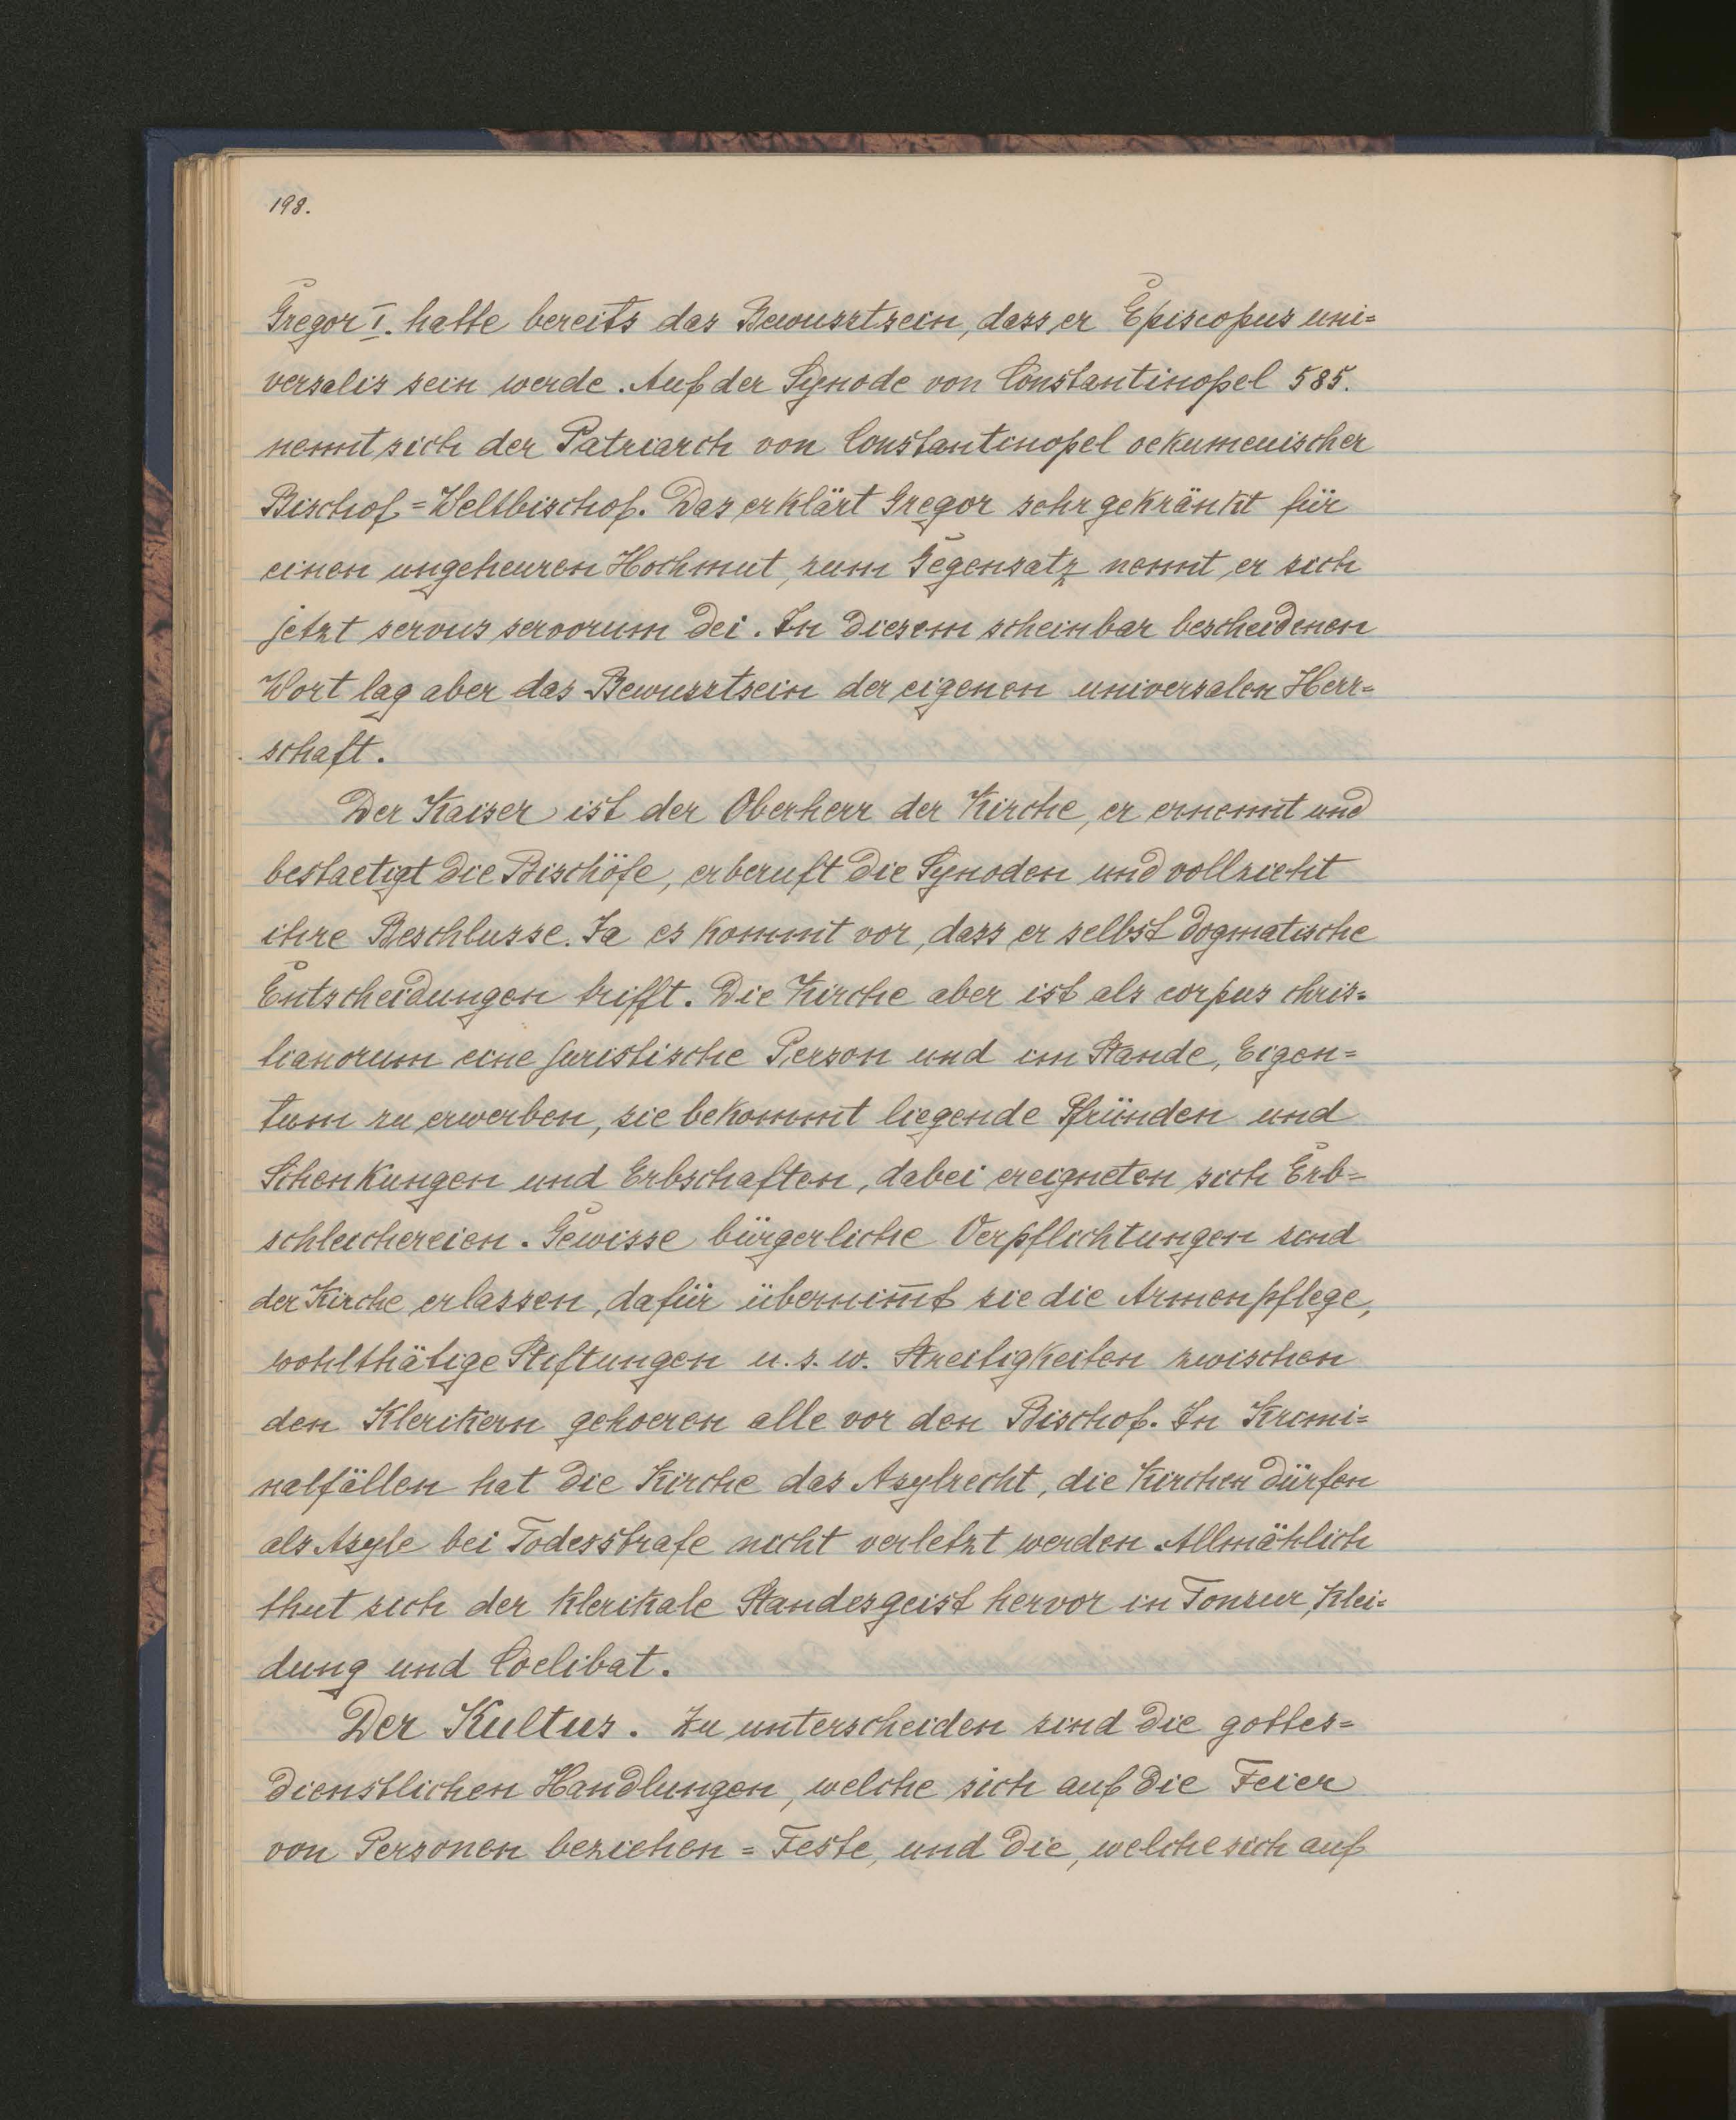 198.
Gregor I. hatte bereits das Bewusstsein, dass er Episcopus uni=
versalis sein werde. Auf der Synode von Constantinopel 585.
nennt sich der Patriarch von Constantinopel oekumenischer
Bischof = Weltbischof. Das erklärt Gregor sehr gekränkt für
einen ungeheuren Hochmut, zum Gegensatz nennt er sich
jetzt servus servorum dei. In diesem scheinbar bescheidenen
Wort lag aber das Bewusstsein der eigenen universalen Herr=
schaft.
Der Kaiser ist der Oberherr der Kirche, er ernennt und
bestaetigt die Bischöfe, er beruft die Synoden und vollzieht
ihre Beschlusse. Ja es kommt vor, dass er selbst dogmatische
Entscheidungen trifft. Die Kirche aber ist als corpus chris=
tianorum eine juristische Person und im Stande, Eigen=
tum zu erwerben, sie bekommt liegende Pfründen und
Schenkungen und Erbschaften, dabei ereigneten sich Erb=
schleichereien. Gewisse bürgerliche Verpflichtungen sind
der Kirche erlassen, dafür übernim̅t sie die Armenpflege,
wohlthätige Stiftungen u. s. w. Streitigkeiten zwischen
den Klerikern gehoeren alle vor den Bischof. In Krimi=
nalfällen hat die Kirche das Asylrecht, die Kirchen dürfen
als Asyle bei Todesstrafe nicht verletzt werden. Allmählich
thut sich der klerikale Standesgeist hervor in Tonsur, Klei=
dung und Coelibat.
Der Kultus. Zu unterscheiden sind die gottes=
dienstlichen Handlungen, welche sich auf die Feier
von Personen beziehen = Feste, und die, welche sich auf